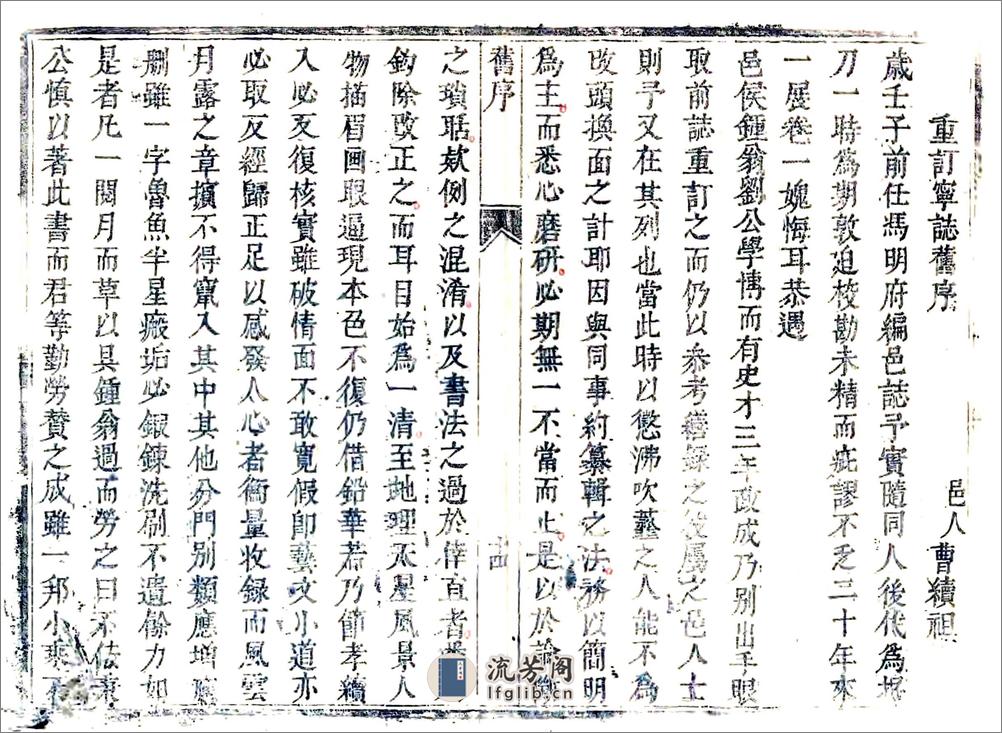 重訂寧誌舊序
邑人曹續祖
歲壬子前任馮明府編邑誌予實隨同人後代爲捉
刀一時爲期敦迫校勘未精而疵謬不乏三十年來
一展卷一媿悔耳恭遇
邑侯鍾翁劉公學博而有史才三年政成乃別出手眼
取前誌重訂之而仍以叅考繕錄之役屬之邑人士
則予又在其列也當此時以懲沸吹虀之人能不爲
改頭換面之計耶因與同事約纂輯之法務以簡明
爲主而悉心磨研必期無一不當而止是以於論
舊序
十四
之瑣聒欵例之混淆以及書法之過於倖直者
鈎除改正之而耳目始爲一清至地理天星風景人
物描眉画眼逼現本色不復仍借鉛華若乃節孝續
入必反復核實雖破情面不敢寬假卽藝文小道亦
必取反經歸正足以感發人心者衡量收録而風雲
月露之章擯不得竄入其中其他分門別類應增應
刪雖一字魯魚半星瘢垢必鍜鍊洗刷不遺餘力如
是者凡一閱月而草以具鍾翁過而勞之曰不佞秉
公慎以著此書而君等勤勞賛之成雖一邦小乘
流芳阁
lfglib.cn